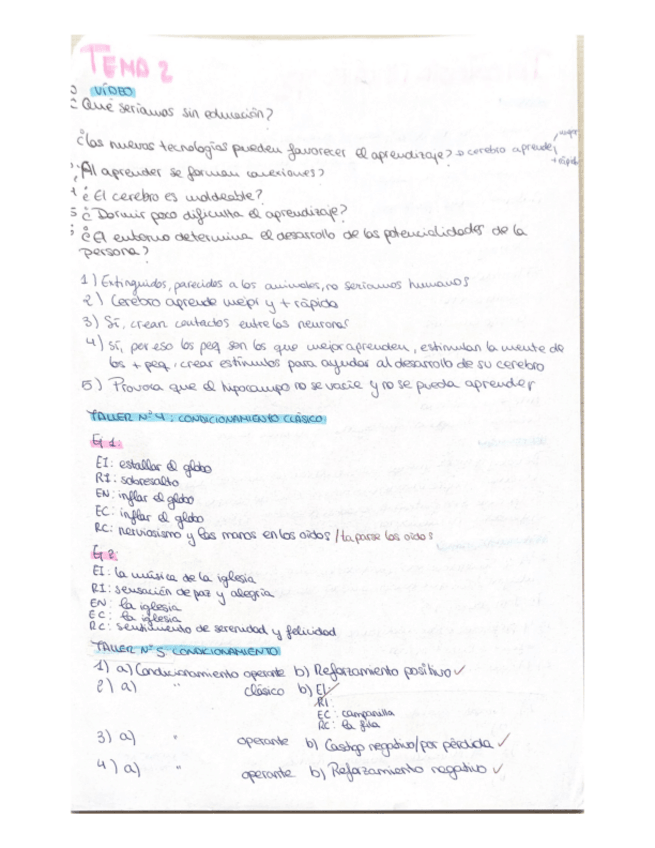 TEMA 2
VÍDEO
¿Qué seríamos sin educación?
¿las nuevas tecnologías pueden favorecer el aprendizaje? → cerebro aprende mejor
+ rápido
¿Al aprender se forman conexiones?
¿El cerebro es moldeable?
5 ¿Dormir poco dificulta el aprendizaje?
¿El entorno determina el desarrollo de las potencialidades de la
persona?
1) Extinguidos, parecidos a los animales, no seríamos humanos
2) Cerebro aprende mejor y + rápido
3) Sí, crean contactos entre las neuronas
4) Sí, por eso los peq son los que mejor aprenden, estimulan la mente de
los + peq, crear estímulos para ayudar al desarrollo de su cerebro
5) Provoca que el hipocampo no se vacíe y no se pueda aprender
TALLER Nº 4: CONDICIONAMIENTO CLÁSICO
Ej 1:
EI: estallar el globo
RI: sobresalto
EN: inflar el globo
EC: inflar el globo
RC: nerviosismo y las manos en los oídos / taparse los oídos
Ej 2:
EI: la música de la iglesia
RI: sensación de paz y alegría
EN: la iglesia
EC: la iglesia
RC: sentimiento de serenidad y felicidad
TALLER Nº 5 CONDICIONAMIENTO
1) a) Condicionamiento operante b) Reforzamiento positivo ✓
2) a) " clásico b) EI ✓
RI:
EC: campanilla
RC: la fila
3) a) " operante b) Castigo negativo/por pérdida ✓
4) a) " operante b) Reforzamiento negativo ✓